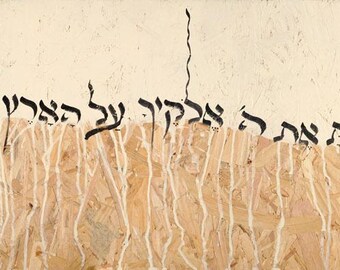 אֶת ה' אֱלֹקֶיךָ עַל הָאָרֶץ